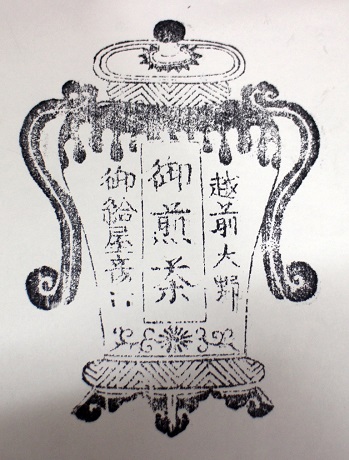 越前大野
御煎茶
御給屋義八